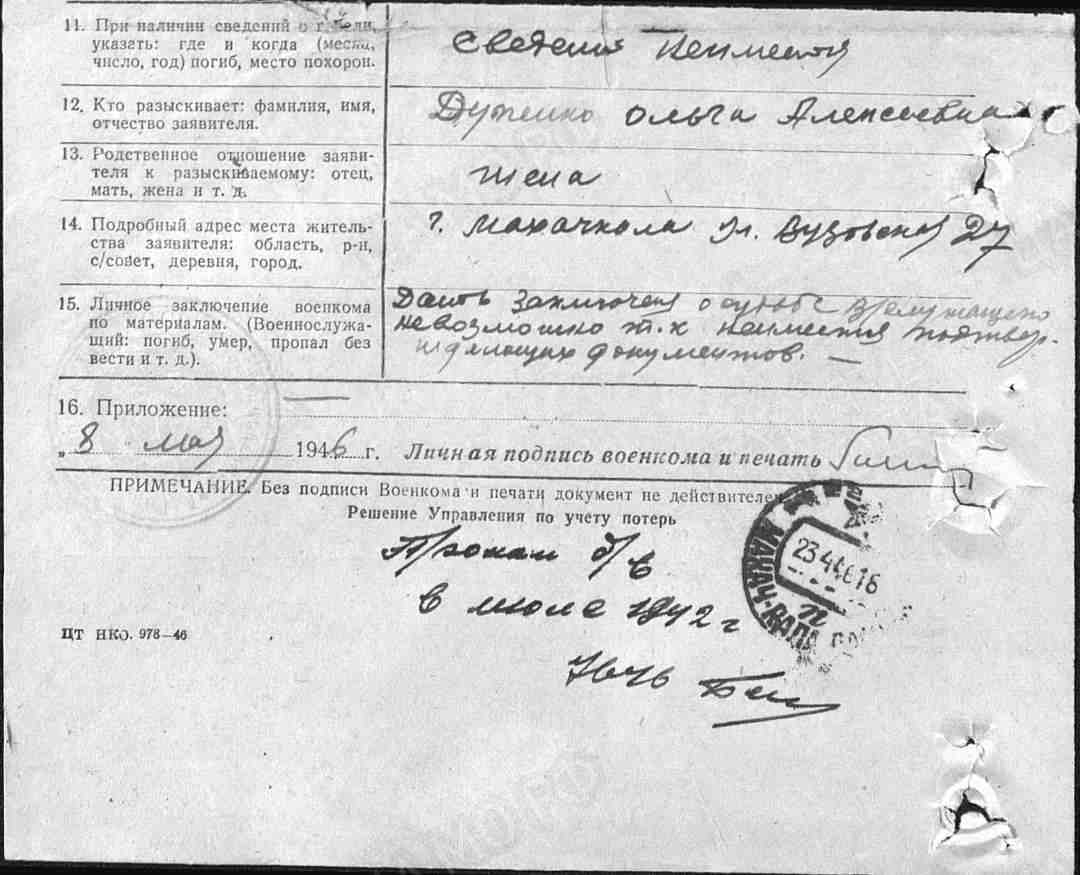 11. При наличии сведений о гибели,
указать: где и когда (месяц,
число, год) погиб, место похорон.
Сведения неимеется
12. Кто разыскивает: фамилия, имя,
отчество заявителя.
Ольга Алексеевна
13. Родственное отношение заяви-
теля к разыскиваемому: отец,
мать, жена и т. д.
жена
14. Подробный адрес места житель-
ства заявителя: область, р-н,
с/совет, деревня, город.
г. Махачкала ул. Вузовская 27
15. Личное заключение военкома
по материалам. (Военнослужа-
щий: погиб, умер, пропал без
вести и т. д.).
Дать заключения о судьбе
невозможно т.к неимеется подтвер-
ждающих документов. —
16. Приложение: —
„8 мая 1946 г. Личная подпись военкома и печать
ПРИМЕЧАНИЕ. Без подписи Военкома и печати документ не действителен
Решение Управления по учету потерь
Пропал б/в
в июле 1942 г
23 4 46 16
МАХАЧ-КАЛА
ЦТ НКО. 978—46